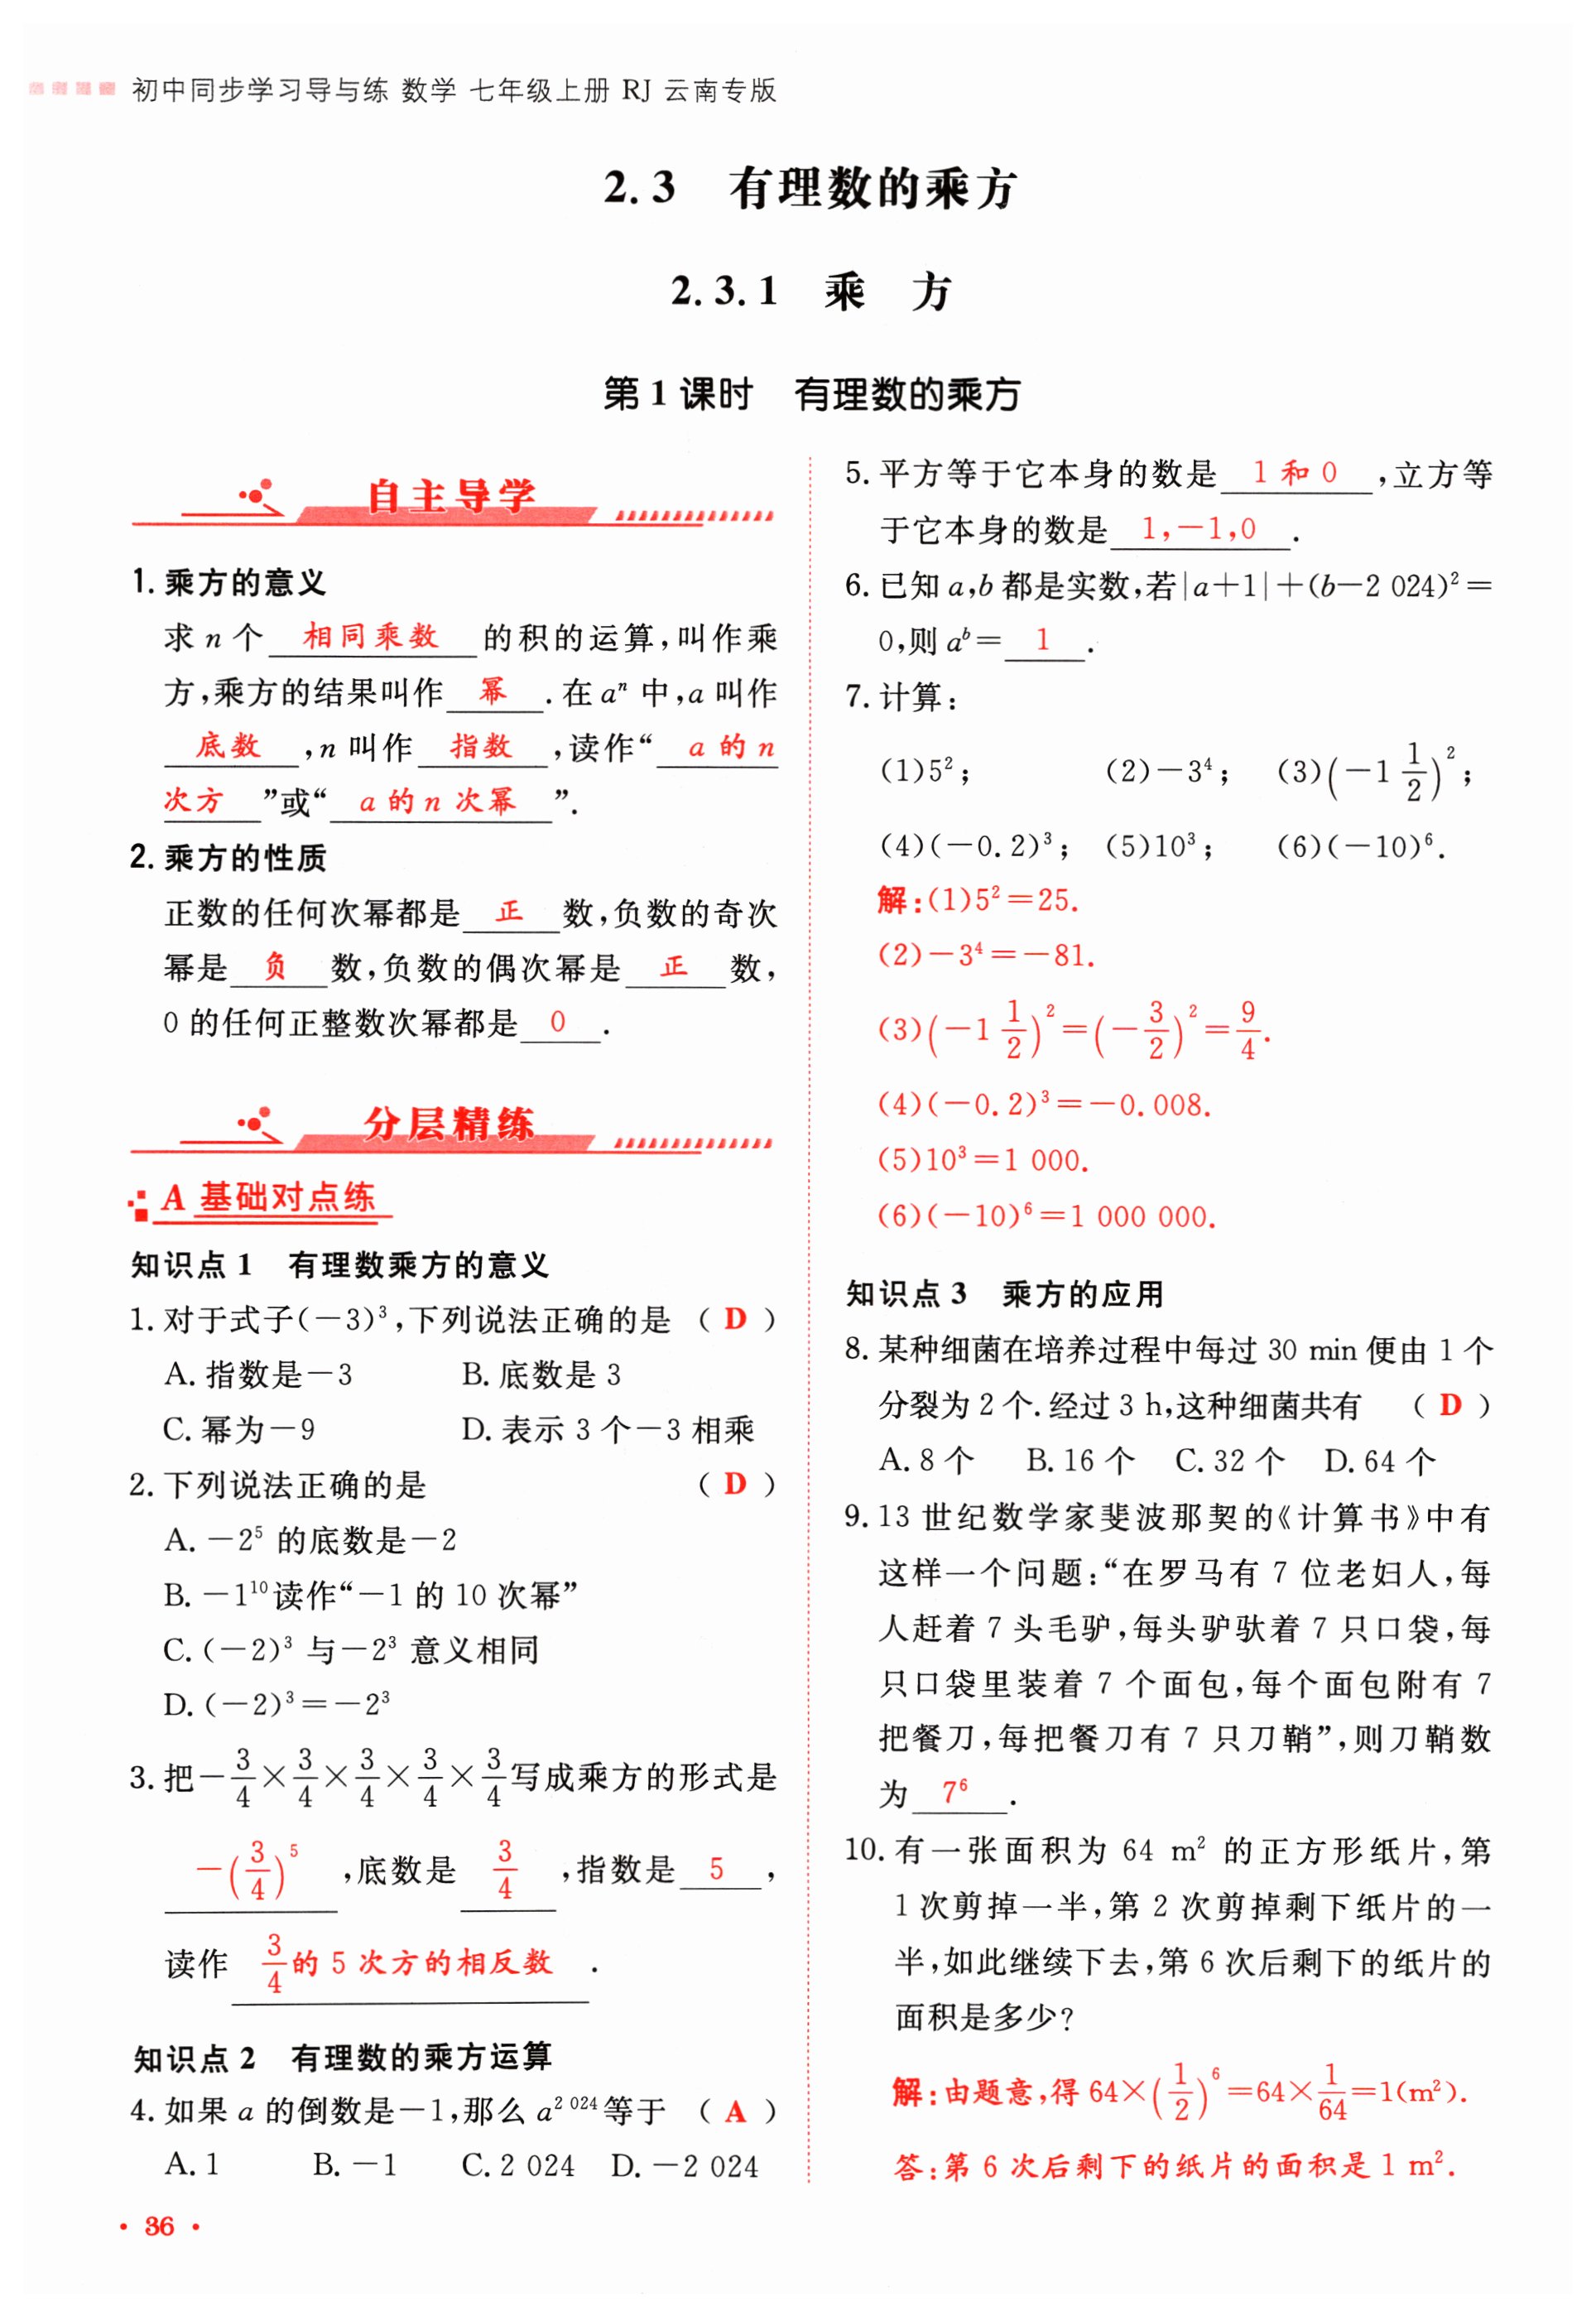 初中同步学习导与练 数学 七年级上册 RJ 云南专版
2.3 有理数的乘方
2.3.1 乘 方
第1课时 有理数的乘方
自主导学
1. 乘方的意义
求 n 个 相同乘数 的积的运算,叫作乘
方,乘方的结果叫作 幂 .在 aⁿ 中,a 叫作
底数 ,n 叫作 指数 ,读作“ a 的 n
次方 ”或“ a 的 n 次幂 ”.
2. 乘方的性质
正数的任何次幂都是 正 数,负数的奇次
幂是 负 数,负数的偶次幂是 正 数,
0 的任何正整数次幂都是 0 .
分层精练
A 基础对点练
知识点 1 有理数乘方的意义
1. 对于式子(－3)³,下列说法正确的是 ( D )
A. 指数是－3 B. 底数是 3
C. 幂为－9 D. 表示 3 个－3 相乘
2. 下列说法正确的是 ( D )
A. －2⁵ 的底数是－2
B. －1¹⁰读作“－1 的 10 次幂”
C. (－2)³ 与－2³ 意义相同
D. (－2)³＝－2³
3. 把－3/4×3/4×3/4×3/4×3/4写成乘方的形式是
－(3/4)⁵ ,底数是 3/4 ,指数是 5 ,
读作 3/4的 5 次方的相反数 .
知识点 2 有理数的乘方运算
4. 如果 a 的倒数是－1,那么 a² ⁰²⁴等于 ( A )
A. 1 B. －1 C. 2 024 D. －2 024
5. 平方等于它本身的数是 1 和 0 ,立方等
于它本身的数是 1,－1,0 .
6. 已知 a,b 都是实数,若|a＋1|＋(b－2 024)²＝
0,则 aᵇ＝ 1 .
7. 计算:
(1)5²; (2)－3⁴; (3)(－1 1/2)²;
(4)(－0.2)³; (5)10³; (6)(－10)⁶.
解:(1)5²＝25.
(2)－3⁴＝－81.
(3)(－1 1/2)²＝(－3/2)²＝9/4.
(4)(－0.2)³＝－0.008.
(5)10³＝1 000.
(6)(－10)⁶＝1 000 000.
知识点 3 乘方的应用
8. 某种细菌在培养过程中每过 30 min 便由 1 个
分裂为 2 个.经过 3 h,这种细菌共有 ( D )
A. 8 个 B. 16 个 C. 32 个 D. 64 个
9. 13 世纪数学家斐波那契的《计算书》中有
这样一个问题:“在罗马有 7 位老妇人,每
人赶着 7 头毛驴,每头驴驮着 7 只口袋,每
只口袋里装着 7 个面包,每个面包附有 7
把餐刀,每把餐刀有 7 只刀鞘”,则刀鞘数
为 7⁶ .
10. 有一张面积为 64 m² 的正方形纸片,第
1 次剪掉一半,第 2 次剪掉剩下纸片的一
半,如此继续下去,第 6 次后剩下的纸片的
面积是多少?
解:由题意,得 64×(1/2)⁶＝64×1/64＝1(m²).
答:第 6 次后剩下的纸片的面积是 1 m².
· 36 ·